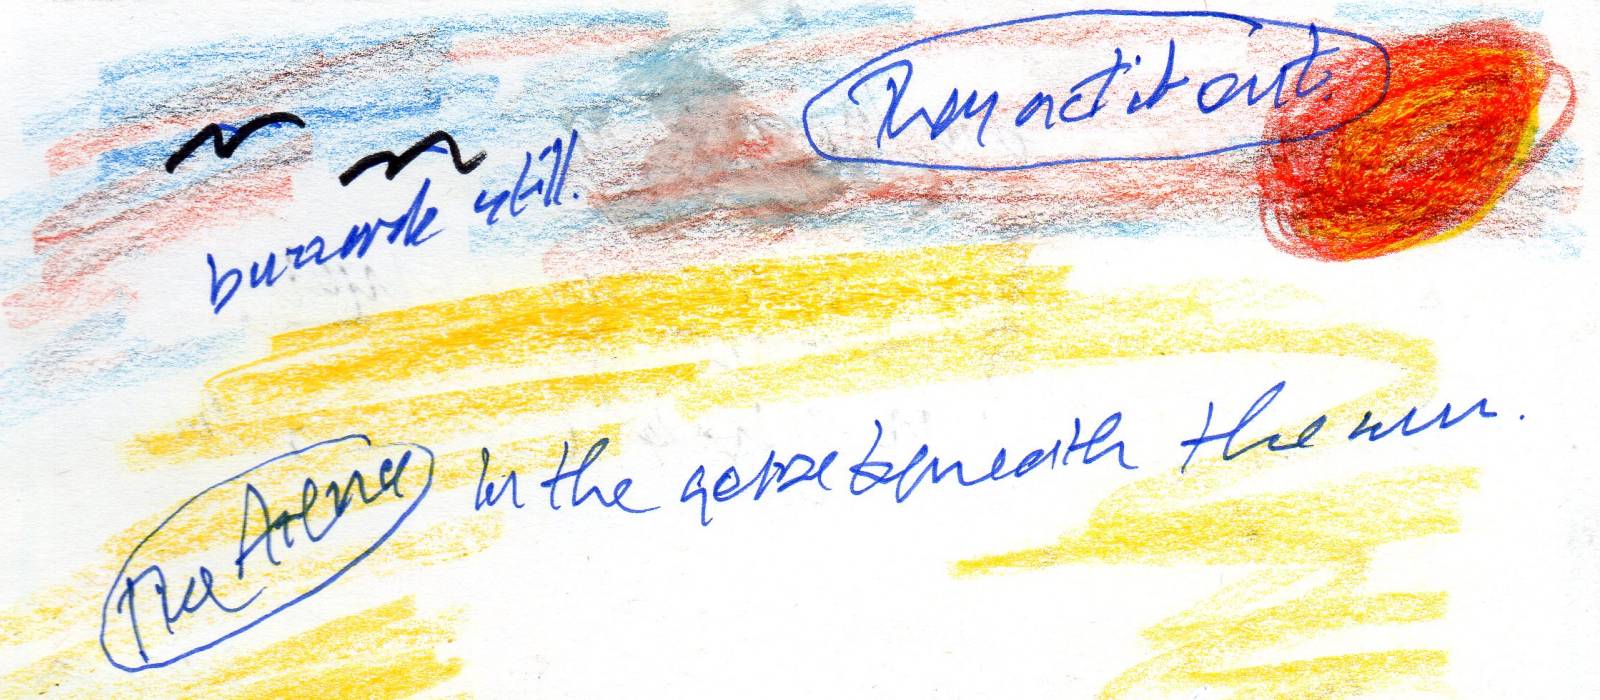 They act it out.
buzzards still.
The Arena
In the gorse beneath the sun.